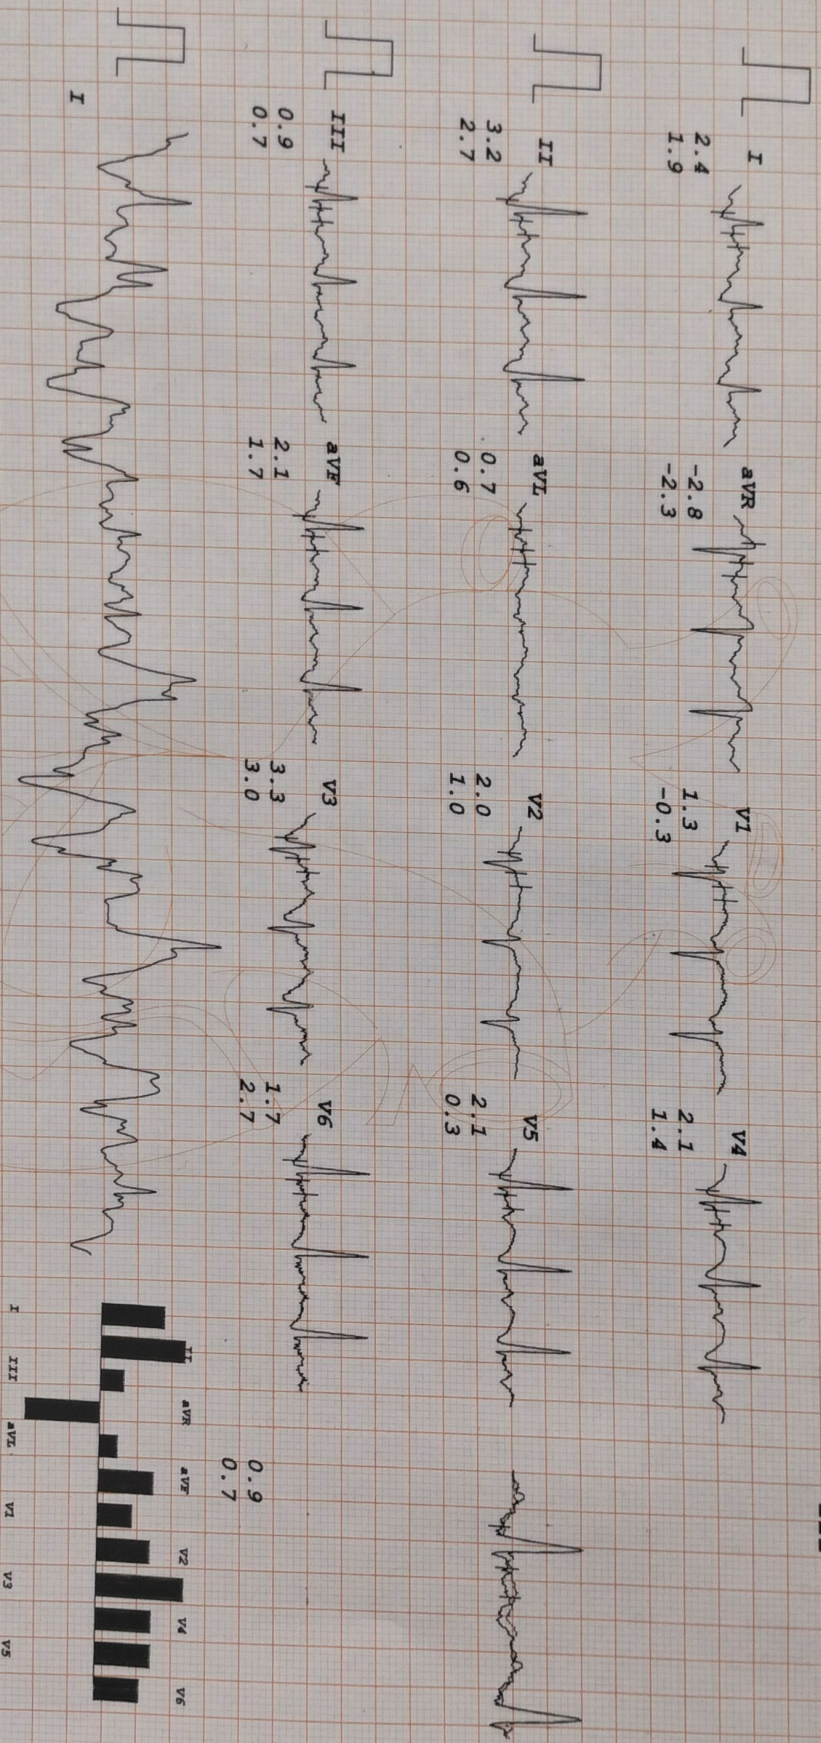 I
2.4
1.9
aVR
-2.8
-2.3
V1
1.3
-0.3
V4
2.1
1.4
II
3.2
2.7
aVL
0.7
0.6
V2
2.0
1.0
V5
2.1
0.3
III
0.9
0.7
aVF
2.1
1.7
V3
3.3
3.0
V6
1.7
2.7
0.9
0.7
I
II aVR aVF V2 V4 V6
I III aVL V1 V3 V5